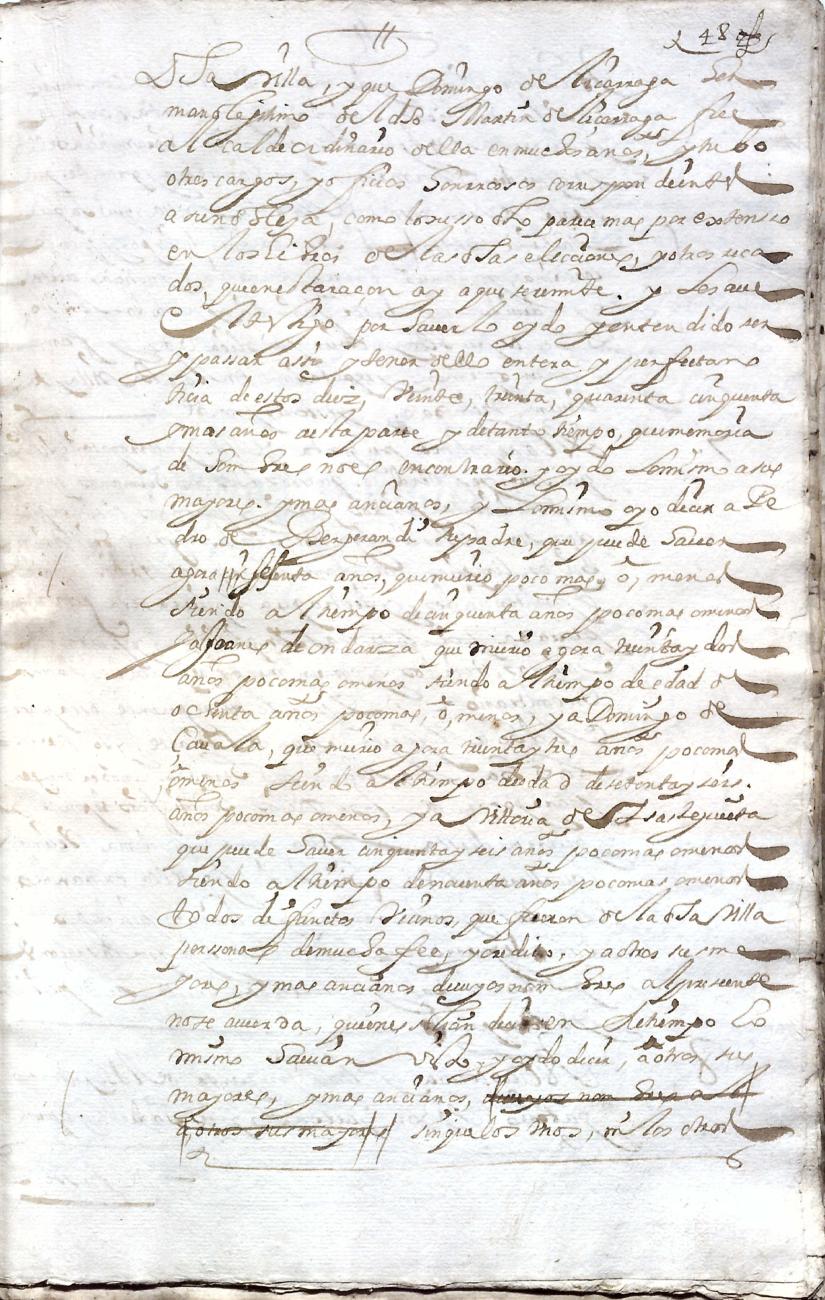 11
48
Dha Villa, y que Domingo de liçarraga her
mano lejitimo del dho Martin de liçarraga fue
alcalde ordinario della en muchos años, y tubo
otros cargos, y oficios honrrosos correspondientes
a su nobleza, como lo susso dho pareçe mas por extenso
en los libros de las dhas elecciones, y otros reca
dos, que en esta raçon ay a que se remite. y lo saue
el testigo por hauerlo oydo y entendido ser
y passar assi y tener dello entera y perfecta no
ticia de estos diez, veinte, treinta, quarenta cinquenta
y mas años a esta parte y de tanto tiempo, que memoria
de hombres no es en contrario. y oydo lo mismo a sus
mayores. y mas ançianos, y lo mismo oyo decir a Pe
dro de Berrerandi su padre, que puede hauer
agora sesenta años, que murio poco mas, o, menos
siendo al tiempo de cinquenta años poco mas o menos
Ja Joanes de ondarza que murio agora treinta y dos
años poco mas o menos siendo al tiempo de edad de
ochenta años poco mas, o, menos, y a Domingo de
Çauala, que murio agora treinta y tres años poco mas
o menos siendo al tiempo de edad de setenta y seis.
años poco mas o menos, y a Vitoria de
que puede hauer cinquenta y seis años poco mas o menos
siendo al tiempo de nouenta años poco mas o menos
todos defunctos Vecinos, que fueron de la dha Villa
perssonas de mucha fee, y credito, y a otros sus ma
yores, y mas ancianos de cuyos nombres al presente
no se acuerda, quienes solian decir en su tiempo lo
mismo hauian visto, y oydo decir, a otros sus
mayores, y mas ancianos, de cuyos nombres al
a otros sus mayores sin que los vnos, ni los otros